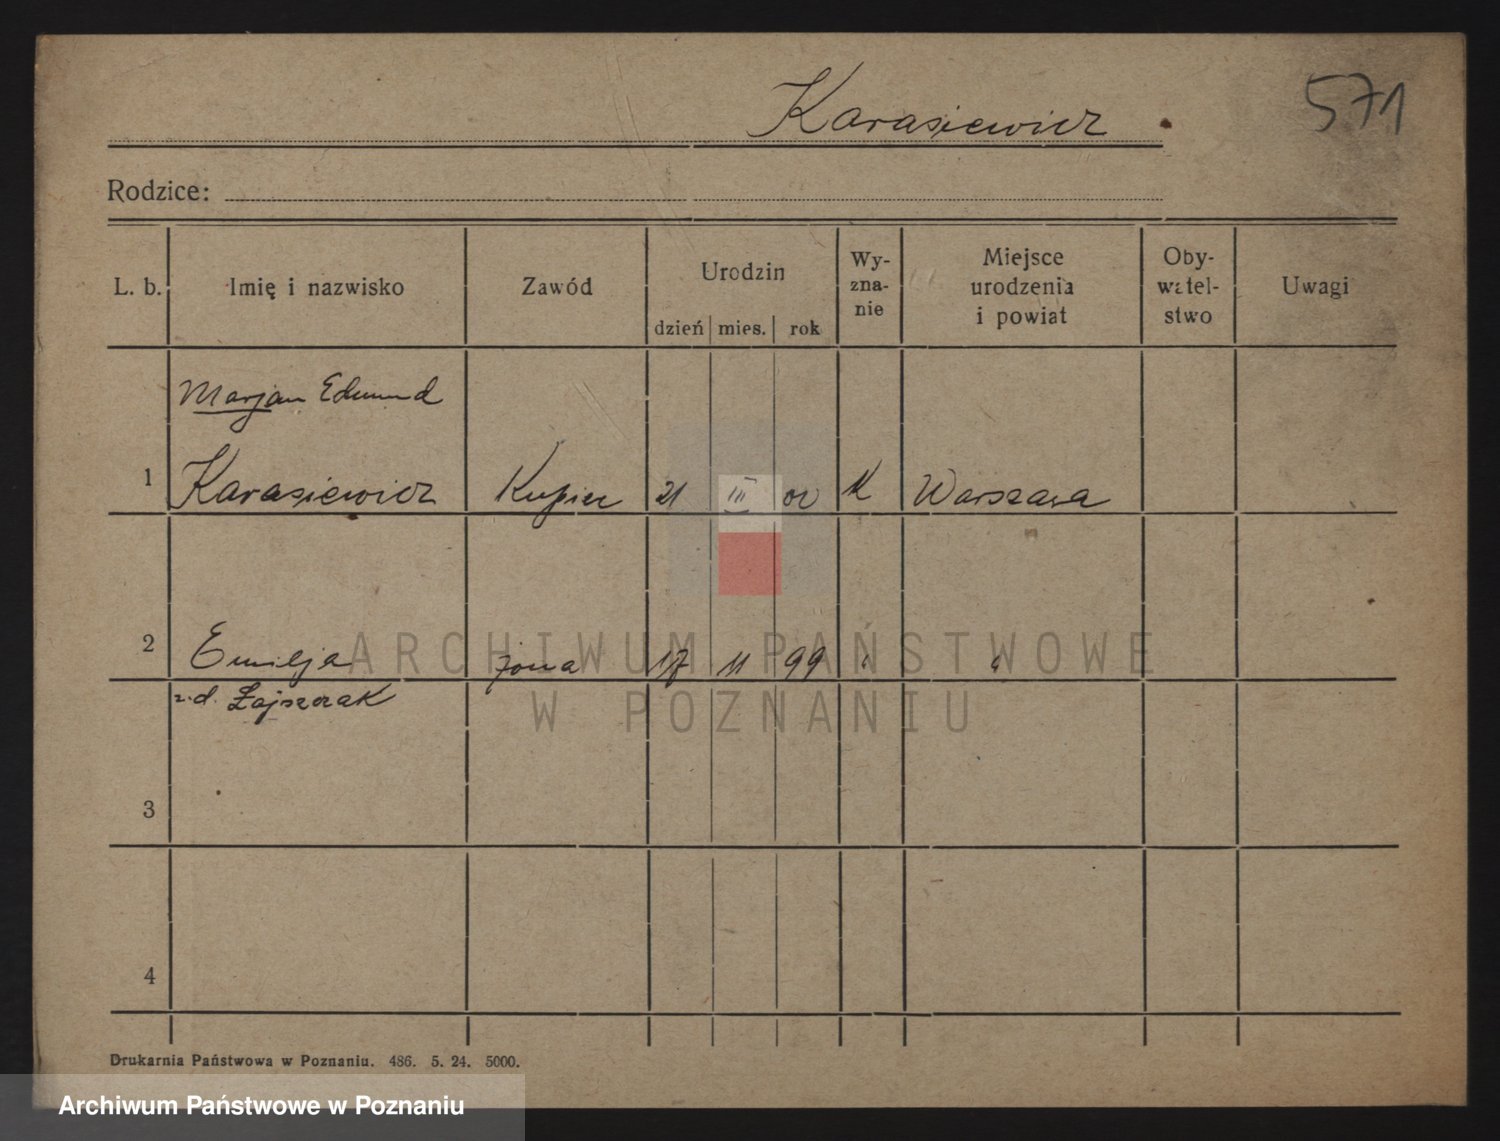 Karasiewicz
571
Rodzice:
L. b. Imię i nazwisko Zawód Urodzin dzień mies. rok Wy-zna-nie Miejsce urodzenia i powiat Oby-watel-stwo Uwagi
Marjan Edmund
1 Karasiewicz Kupiec 21 III 00 K Warszawa
2 Emilja żona 17 11 99 " "
z d. Łajszczak
3
4
Drukarnia Państwowa w Poznaniu. 486. 5. 24. 5000.
ARCHIWUM PAŃSTWOWE
W POZNANIU
Archiwum Państwowe w Poznaniu